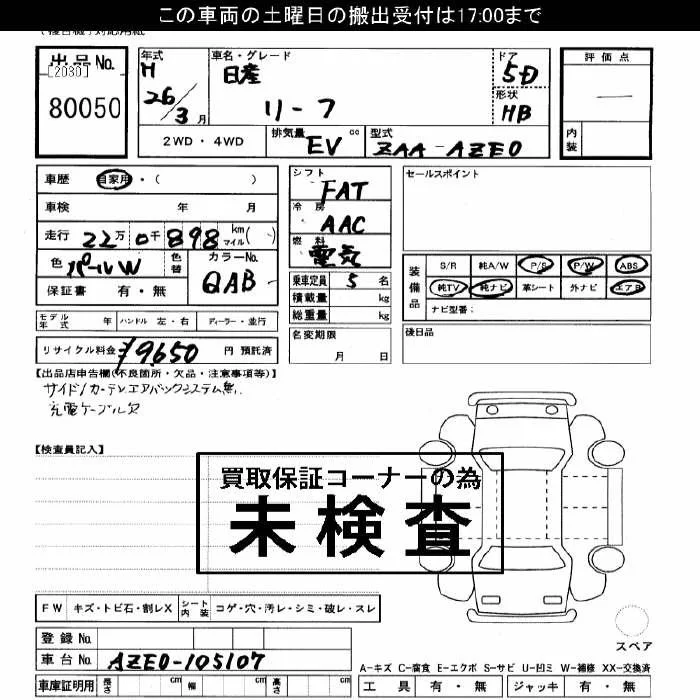 この車両の土曜日の搬出受付は17:00まで
出品No.
[2080]
80050
年式
H
26/3月
車名・グレード
日産
リーフ
ドア
5D
形状
HB
評価点
内装
2WD・4WD
排気量 EV cc
型式 ZAA-AZE0
車歴 自家用・( )
車検 年 月
走行 22万0千898 km マイル( )
色 パールW 色替 カラーNo. QAB
保証書 有・無
シフト FAT
冷房 AAC
燃料 電気
乗車定員 5 名
積載量 kg
総重量 kg
セールスポイント
装備品
S/R 純A/W P/S P/W ABS
純TV 純ナビ 革シート 外ナビ エアB
ナビ型番:
モデル年式 年 ハンドル 左・右 ディーラー・並行
リサイクル料金 ¥9650 円 預託済
名変期限
月 日
後日品
【出品店申告欄(不良箇所・欠品・注意事項等)】
サイド/カーテンエアバックシステム無し
充電ケーブル欠
【検査員記入】
買取保証コーナーの為
未検査
FW キズ・トビ石・割レX シート内装 コゲ・穴・汚レ・シミ・破レ・スレ
登録No.
車台No. AZE0-105107
車庫証明用 長さ cm 幅 cm 高さ cm
スペア
A-キズ C-腐食 E-エクボ S-サビ U-凹ミ W-補修 XX-交換済
工具 有・無 ジャッキ 有・無